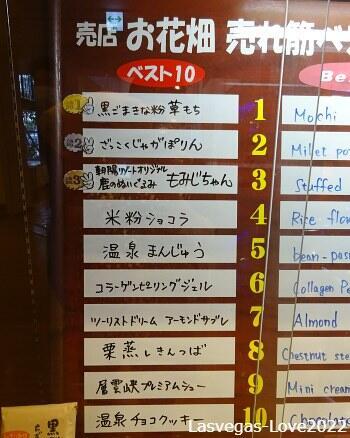 売店 お花畑 売れ筋ベ
ベスト10 Be
1 黒ごまきな粉 草もち 1 Mochi
2 ざっこくじゃがぽりん 2 Millet pot
3 朝陽リゾートオリジナル
鹿のぬいぐるみ もみじちゃん 3 Stuffed
米粉ショコラ 4 Rice flow
温泉まんじゅう 5 bean-pas
コラーゲンピリングジェル 6 Collagen Pe
ツーリストドリーム アーモンドサブレ 7 Almond
栗蒸しきんつば 8 Chestnut stea
層雲峡プレミアムシュー 9 Mini cream
温泉チョコクッキー 10 Chocolate
黒
Lasvegas-Love2022